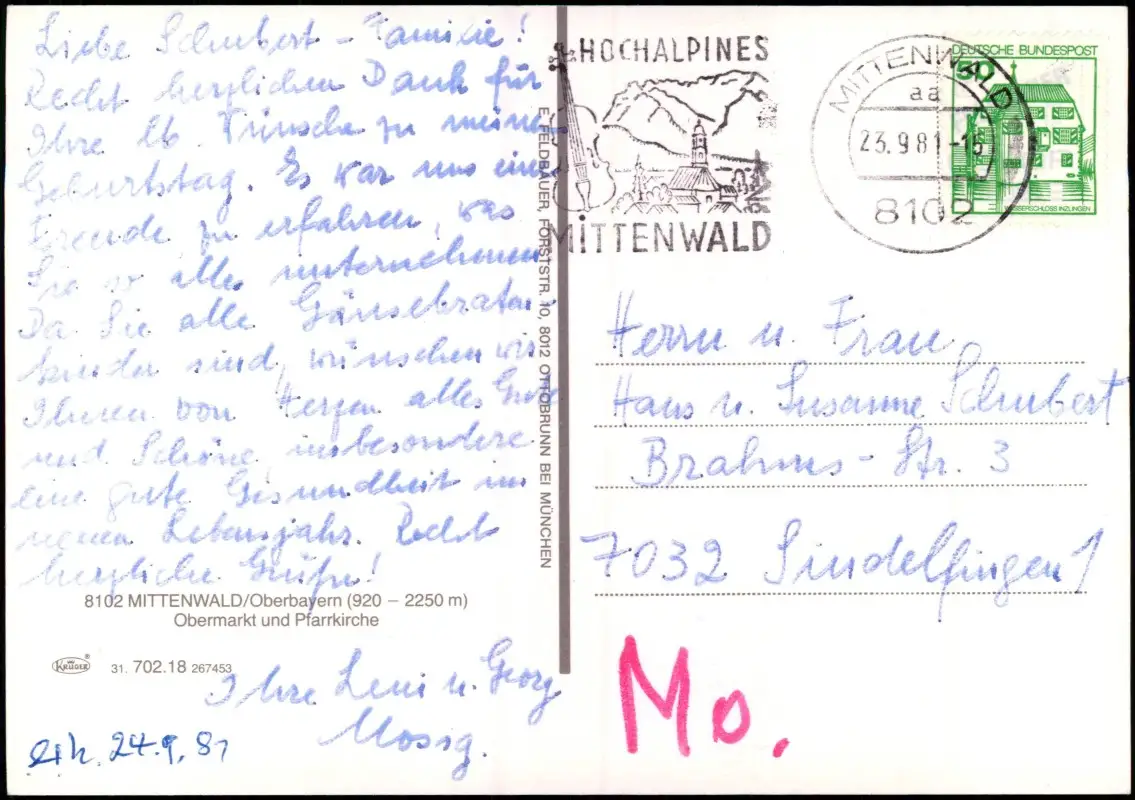 Liebe Schubert-Familie!
Recht herzlichen Dank für
Ihre lb. Wünsche zu meinem
Geburtstag. Es war uns eine
Freude zu erfahren, was
Sie so alles unternehmen
Da Sie alle Gänsebraten-
kinder sind, wünschen wir
Ihnen von Herzen alles Gute
und Schöne, insbesondere
eine gute Gesundheit im
neuen Lebensjahr. Recht
herzliche Grüße!
8102 MITTENWALD/Oberbayern (920 – 2250 m)
Obermarkt und Pfarrkirche
KRÜGER ® 31. 702.18 267453
Ihre Leni u. Georg
Mossig.
erh. 24.9.81
E. FELDBAUER, FORSTSTR. 10, 8012 OTTOBRUNN BEI MÜNCHEN
HOCHALPINES
MITTENWALD
MITTENWALD
aa
23.9.81-
8102
DEUTSCHE BUNDESPOST
50
WASSERSCHLOSS INZLINGEN
Herrn u. Frau
Hans u. Susanne Schubert
Brahms-Str. 3
7032 Sindelfingen 1
Mo.